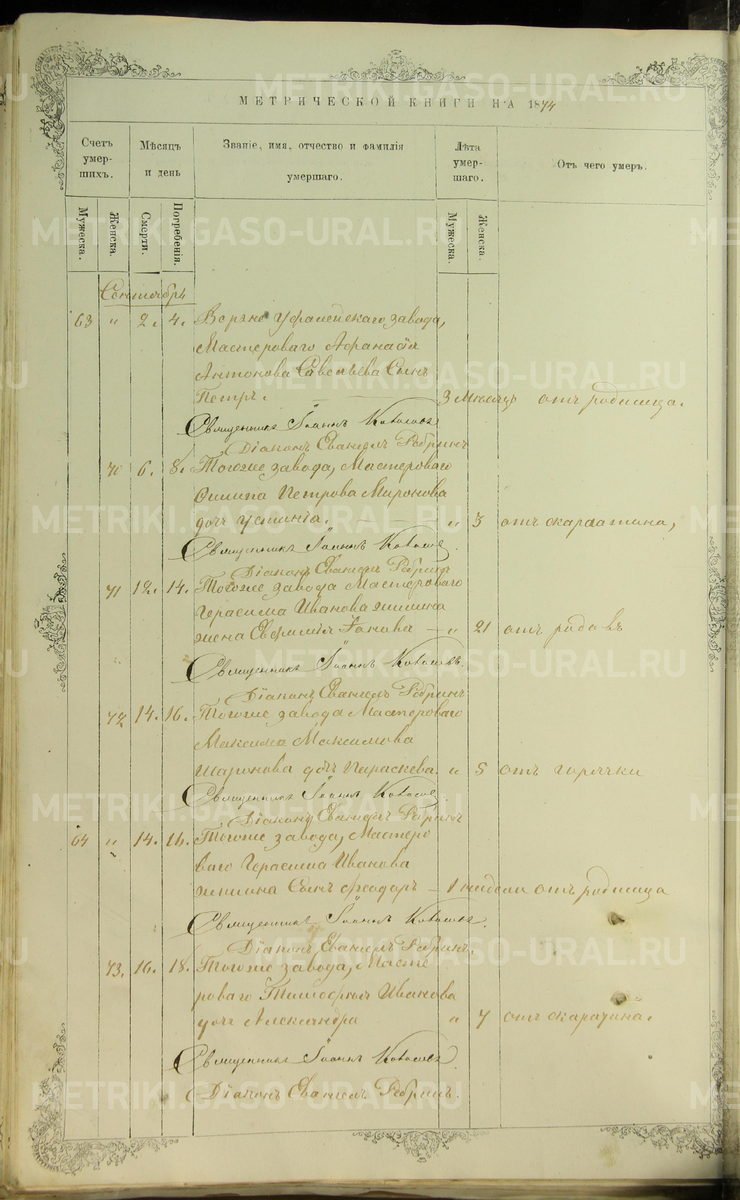 МЕТРИЧЕСКОЙ КНИГИ НА 1874
Счетъ умер- шихъ.
Мѣсяцъ и день
Званіе, имя, отчество и фамилія умершаго.
Лѣта умер- шаго.
Отъ чего умеръ.
Мужеска.
Женска.
Смерти.
Погребенія.
Мужеска.
Женска.
Сентябрь
63 " 2. 4. Верхне Уфалейскаго завода,
Мастероваго Афанасія
Антонова Савельева Сынъ
Петръ. 3 месяцъ отъ родимца.
Священникъ Іоаннъ
Діаконъ Евангелъ Ребринъ
70 6. 8. Тогоже завода, Мастероваго
Филипа Петрова Миронова
дочь Устинія. " 3 отъ скарлатина,
Священникъ Іоаннъ
Діаконъ Евангелъ Ребринъ
71 12. 14. Тогоже завода Мастероваго
Герасима Иванова
жена Евфимія " 21 отъ родовъ
Священникъ Іоаннъ
Діаконъ Евангелъ Ребринъ
72 14. 16. Тогоже завода Мастероваго
Максима Максимова
дочь Параскева. " 5 отъ горячки
Священникъ Іоаннъ
Діаконъ Евангелъ Ребринъ
64 " 14. 16. Тогоже завода, Мастеро
ваго Герасима Иванова
Сынъ Феодоръ 1 недели отъ родимца
Священникъ Іоаннъ
Діаконъ Евангелъ Ребринъ.
73. 16. 18. Тогоже завода, Масте
роваго Тимофея Иванова
дочь Александра " 7 отъ скарлатина.
Священникъ Іоаннъ
Діаконъ Евангелъ Ребринъ.
METRIKI.GASO-URAL.RU